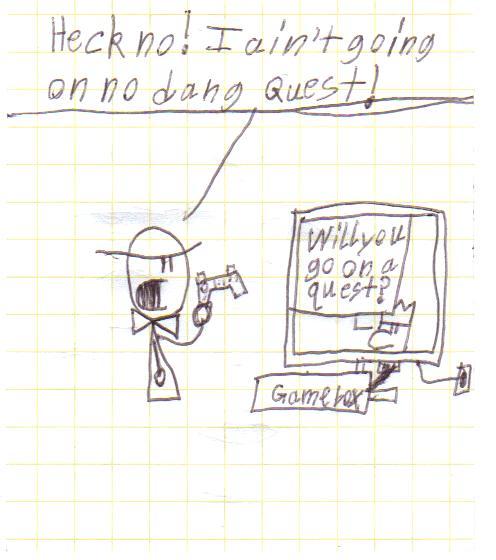 Heck no! I ain't going
on no dang Quest!
Will you
go on a
quest?
Gamebox